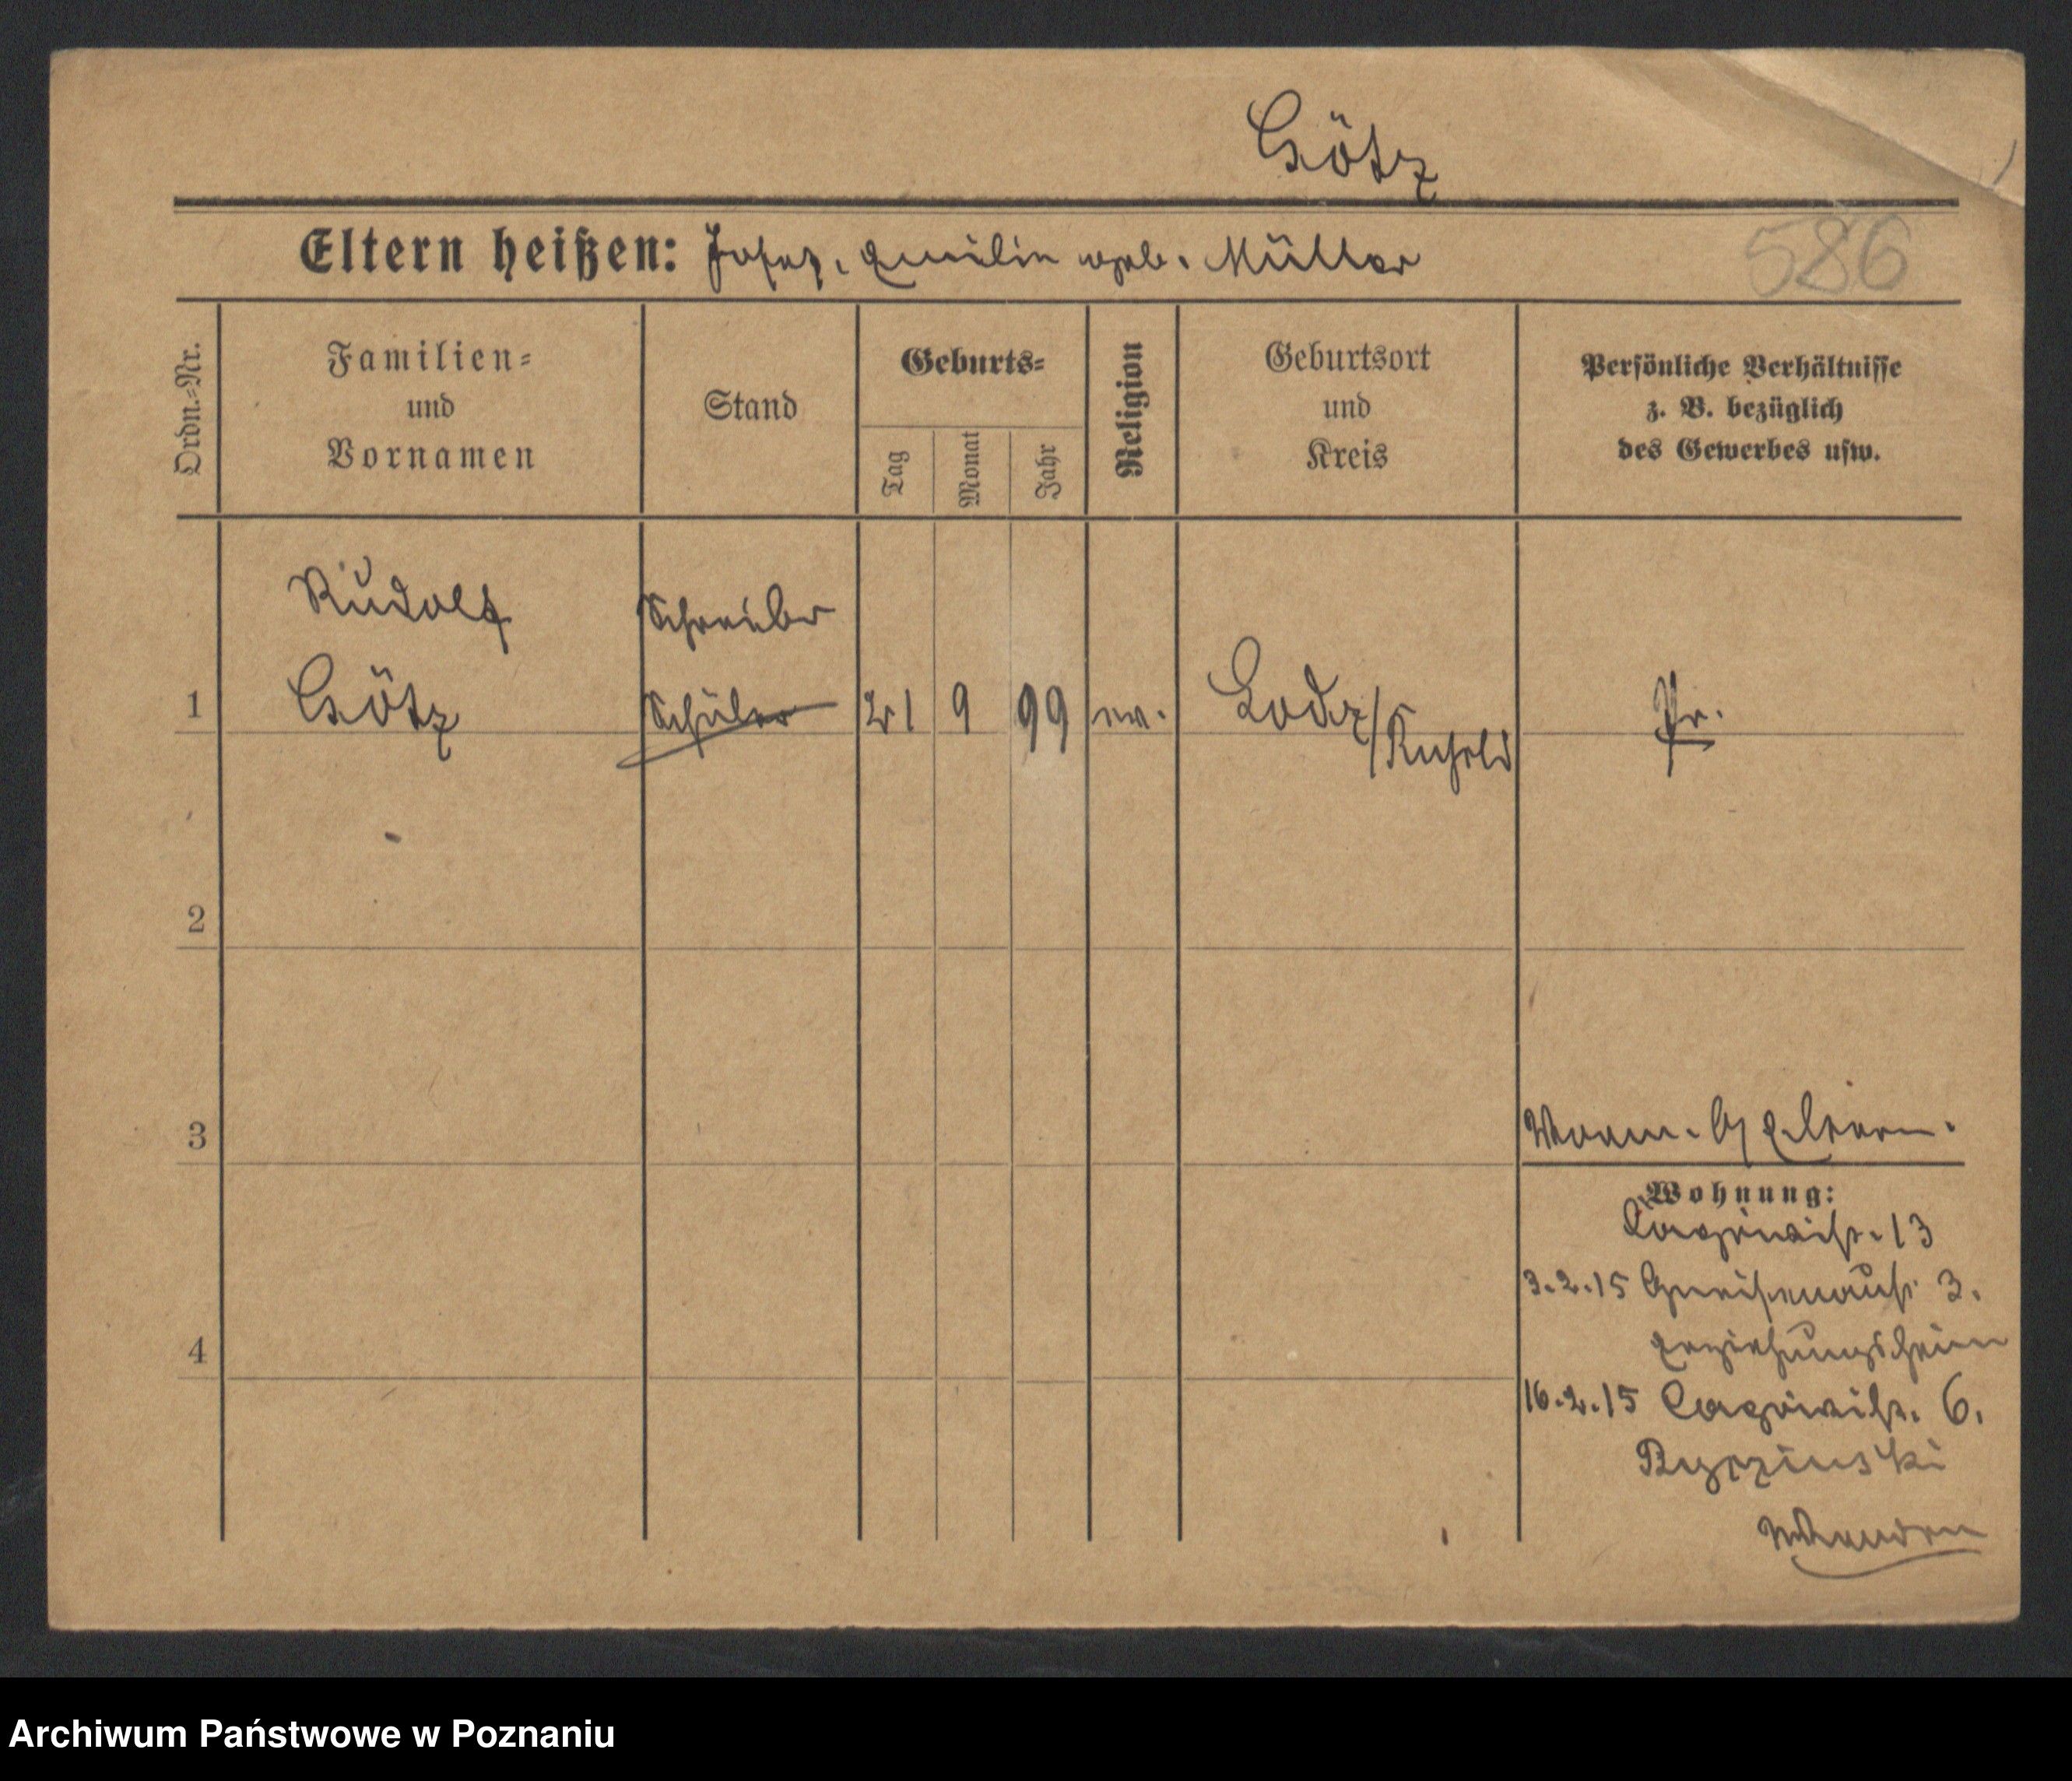 Götz
Eltern heißen: Josef, Emilie geb. Müller
586
Ordn.-Nr.
Familien-
und
Vornamen
Stand
Geburts-
Tag
Monat
Jahr
Religion
Geburtsort
und
Kreis
Persönliche Verhältnisse
z. B. bezüglich
des Gewerbes usw.
Rudolf
Schreiber
1
Götz
Schüler
21
9
99
ev.
Lodz/
Rußld
Pr.
2
3
b/ Eltern.
Wohnung:
13
3.2.15 Gneisenaustr. 3.
Erziehungsheim
4
16.2.15 6.
Archiwum Państwowe w Poznaniu